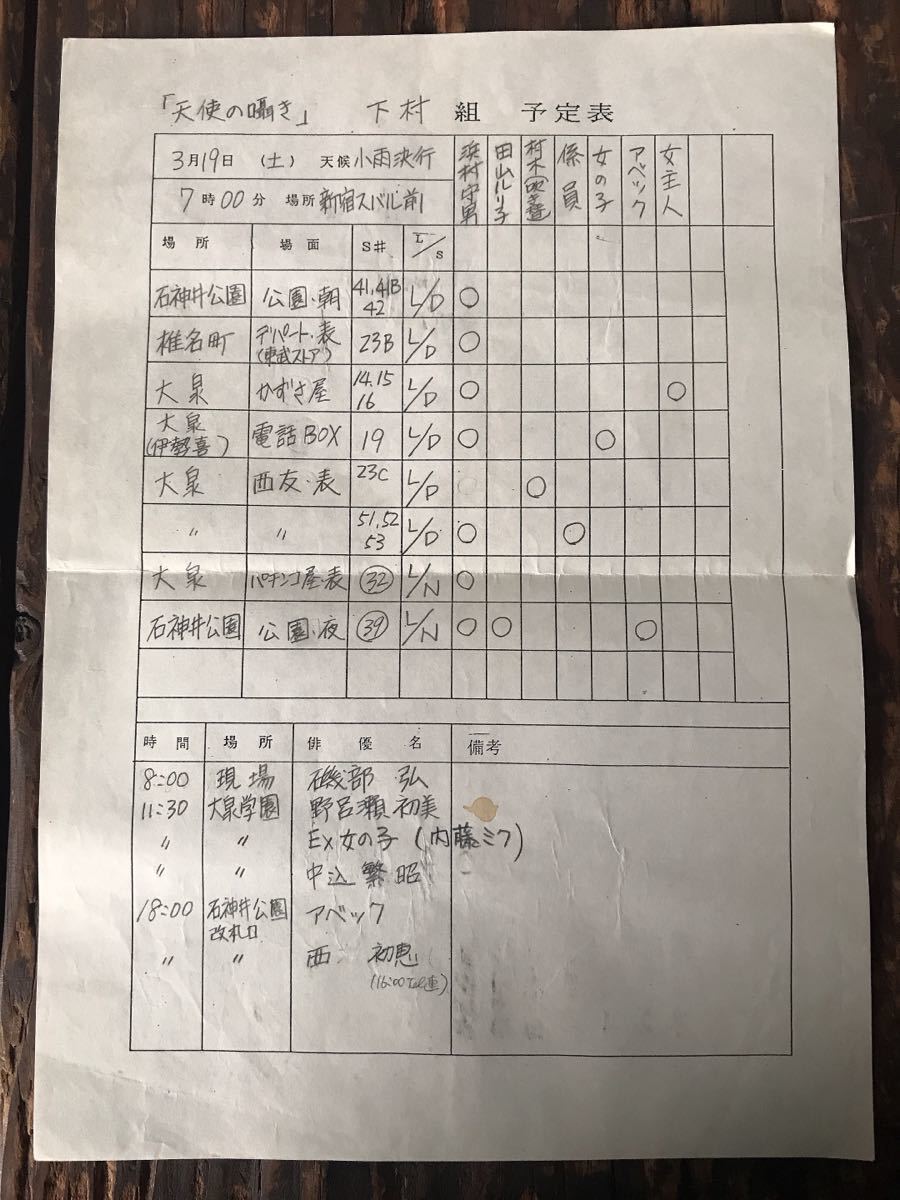 「天使の囁き」 下村 組 予定表
3月19日 (土) 天候 小雨決行
7時00分 場所 新宿スバル前
浜村守男
田山ルリ子
係員
女の子
アベック
女主人
場所 場面 S# L/S
石神井公園 公園・朝 41,41B 42 L/D ○
椎名町 デパート・表 (東武ストア) 23B L/D ○
大泉 かずさ屋 14.15 16 L/D ○ ○
大泉 (伊勢喜) 電話BOX 19 L/D ○ ○
大泉 西友・表 23C L/D ○
〃 〃 51,52 53 L/D ○ ○
大泉 パチンコ屋・表 ㉜ L/N ○
石神井公園 公園・夜 ㊴ L/N ○ ○ ○
時間 場所 俳優名 備考
8:00 現場 磯部 弘
11:30 大泉学園 野呂瀬 初美
〃 〃 Ex女の子(内藤ミク)
〃 〃 中込 繁昭
18:00 石神井公園 改札口 アベック
〃 〃 西 初恵